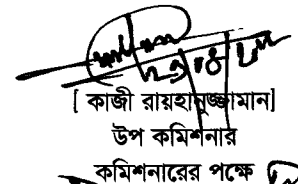 [ কাজী রায়হানুজ্জামান]
উপ কমিশনার
কমিশনারের পক্ষে